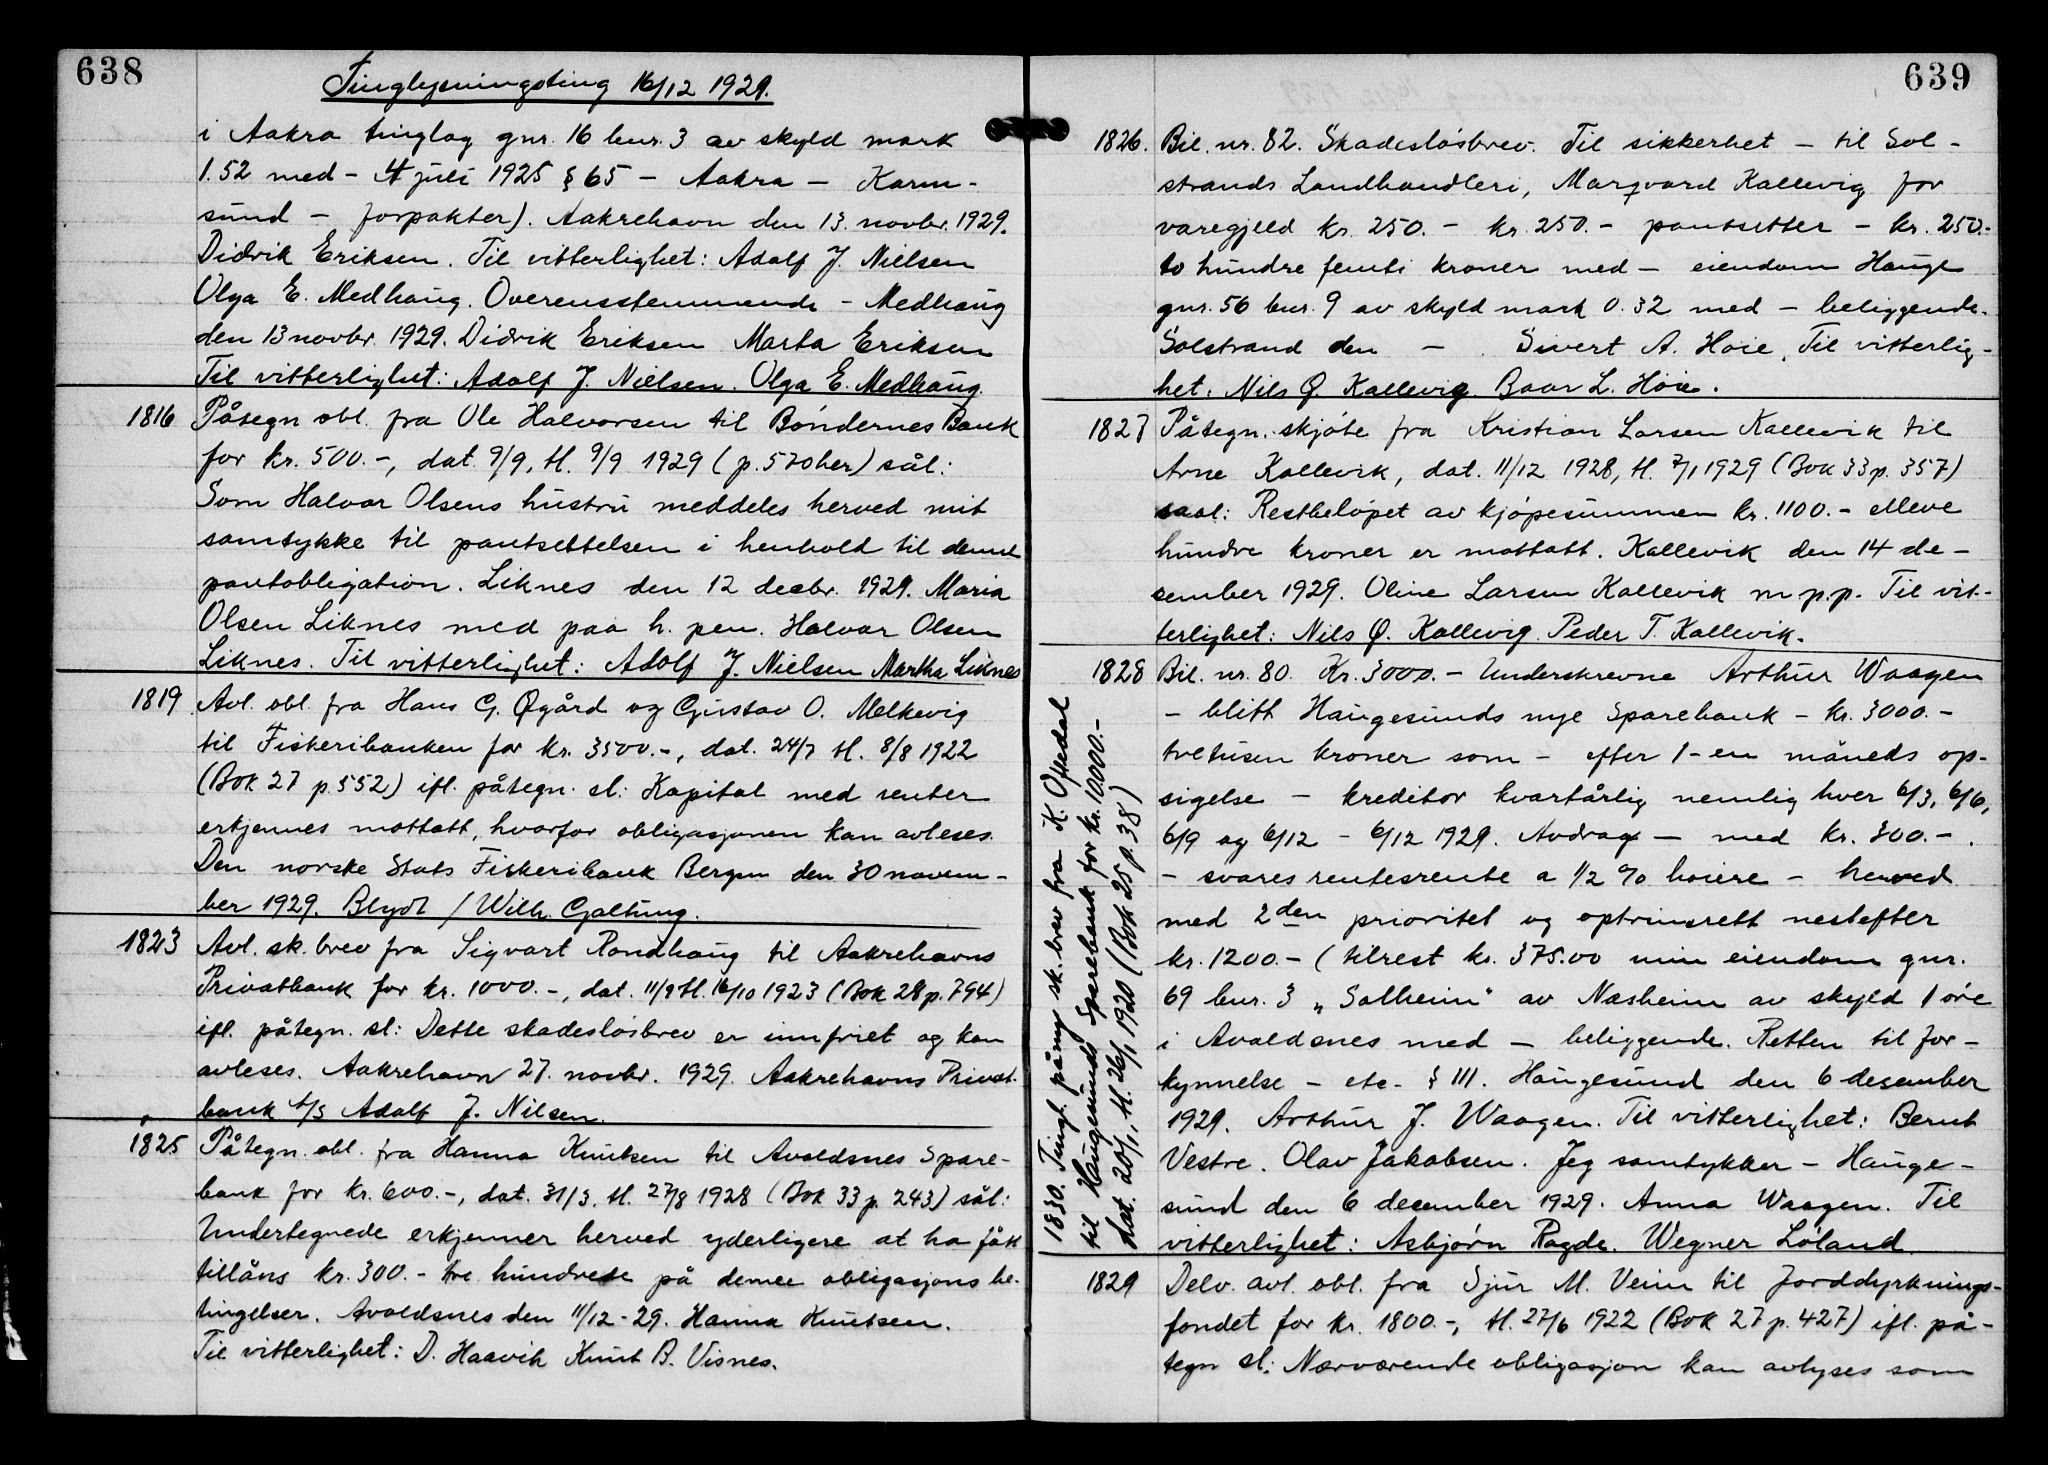 638
Tinglysningsting 16/12 1929.
i Aakra tinglag gnr. 16 bnr. 3 av skyld mark
1.52 med - 4 juli 1925 § 65 - Aakra - Karm-
sund - forpakter). Aakrehavn den 13. novbr. 1929.
Didrik Eriksen. Til vitterlighet: Adolf J. Nielsen
Olga E. Medhaug. Overensstemmende - Medhaug
den 13 novbr. 1929. Didrik Eriksen Marta Eriksen
Til vitterlighet: Adolf J. Nielsen. Olga E. Medhaug.
1816 Påtegn obl. fra Ole Halvorsen til Bøndernes Bank
for kr. 500.-, dat. 9/9, tl. 9/9 1929 (p. 570 her) sål:
Som Halvar Olsens hustru meddeles herved mit
samtykke til pantsettelsen i henhold til denne
pantobligation. Liknes den 12 decbr. 1929. Maria
Olsen Liknes med paa h. pen. Halvar Olsen
Liknes. Til vitterlighet: Adolf J. Nielsen Martha Liknes
1819. Avl. obl. fra Hans G. Øgård og Gustav O. Melkevig
til Fiskeribanken for kr. 3500.-, dat. 24/7 tl. 8/8 1922
(Bok 27 p. 552) ifl. påtegn. sl: Kapital med renter
erkjennes mottatt, hvorfor obligasjonen kan avleses.
Den norske Stats Fiskeribank Bergen den 30 novem-
ber 1929. Blydt / Wilh. Galtung.
1823 Avl. sk. brev fra Sigvart Rondhaug til Aakrehavns
Privatbank for kr. 1000.-, dat. 11/9 tl. 16/10 1923 (Bok 28 p. 794)
ifl. påtegn. sl: Dette skadesløsbrev er innfriet og kan
avleses. Aakrehavn 27. novbr. 1929. Aakrehavns Privat-
bank A/S Adolf J. Nilsen.
1825 Påtegn. obl. fra Hanna Knutsen til Avaldsnes Spare-
bank for kr. 600.-, dat. 31/3. tl. 27/8 1928 (Bok 33 p. 243) sål:
Undertegnede erkjenner herved yderligere at ha fåt
tillåns kr. 300.- tre hundrede på denne obligasjons be-
tingelser. Avaldsnes den 11/12-29. Hanna Knutsen.
Til vitterlighet: D. Haavik Knut B. Visnes.
639
1826. Bil. nr. 82. Skadesløsbrev. Til sikkerhet - til Sol-
strands Landhandleri, Marqvard Kallevig for
varegjeld kr. 250.- kr. 250.- pantsetter - kr. 250.-
to hundre femti kroner med - eiendom Hauge
gnr. 56 bnr. 9 av skyld mark 0.32 med - beliggende.
Solstrand den - . Sivert A. Høie, Til vitterlig-
het: Nils Ø. Kallevig. Baar L. Høie.
1827 Påtegn. skjøte fra Kristian Larsen Kallevik til
Arne Kallevik, dat. 11/12 1928, tl. 7/1 1929 (Bok 33 p. 357)
saal: Restbeløpet av kjøpesummen kr. 1100.- elleve
hundre kroner er mottatt. Kallevik den 14 de-
sember 1929. Oline Larsen Kallevik m p.p. Til vit-
terlighet: Nils Ø. Kallevig. Peder T. Kallevik.
1828 Bil. nr. 80. Kr. 3000.- Underskrevne Arthur Waagen
- blitt Haugesunds nye Sparebank - kr. 3000.-
tretusen kroner som - efter 1-en måneds op-
sigelse - kreditor kvartårlig nemlig hver 6/3, 6/6,
6/9 og 6/12 - 6/12 1929. Avdrag - med kr. 300.-.
- svares rentesrente a 1/2 % høiere - herved
med 2den prioritet og optrinsrett nestefter
kr. 1200.- (tilrest kr. 375.00 min eiendom gnr.
69 bnr. 3 „Solheim" av Næsheim av skyld 1 øre
i Avaldsnes med - beliggende. Retten til for-
kynnelse - etc. § 111. Haugesund den 6 desember
1929. Arthur J. Waagen. Til vitterlighet: Bernt
Vestre. Olav Jakobsen. Jeg samtykker - Hauge-
sund den 6 december 1929. Anna Waagen. Til
vitterlighet: Asbjørn Ragde. Wegner Løland.
1829 Delv. avl. obl. fra Sjur M. Veim til Jorddyrknings-
fondet for kr. 1800.-, tl. 27/6 1922 (Bok 27 p. 427) ifl. på-
tegn sl: Nærværende obligasjon kan avlyses som
1830. Tingl. påny sk. brev fra K. Oftedal
til Haugesunds Sparebank for kr. 10000.-
dat. 20/1, tl. 26/1 1920 (Bok 25 p. 38)